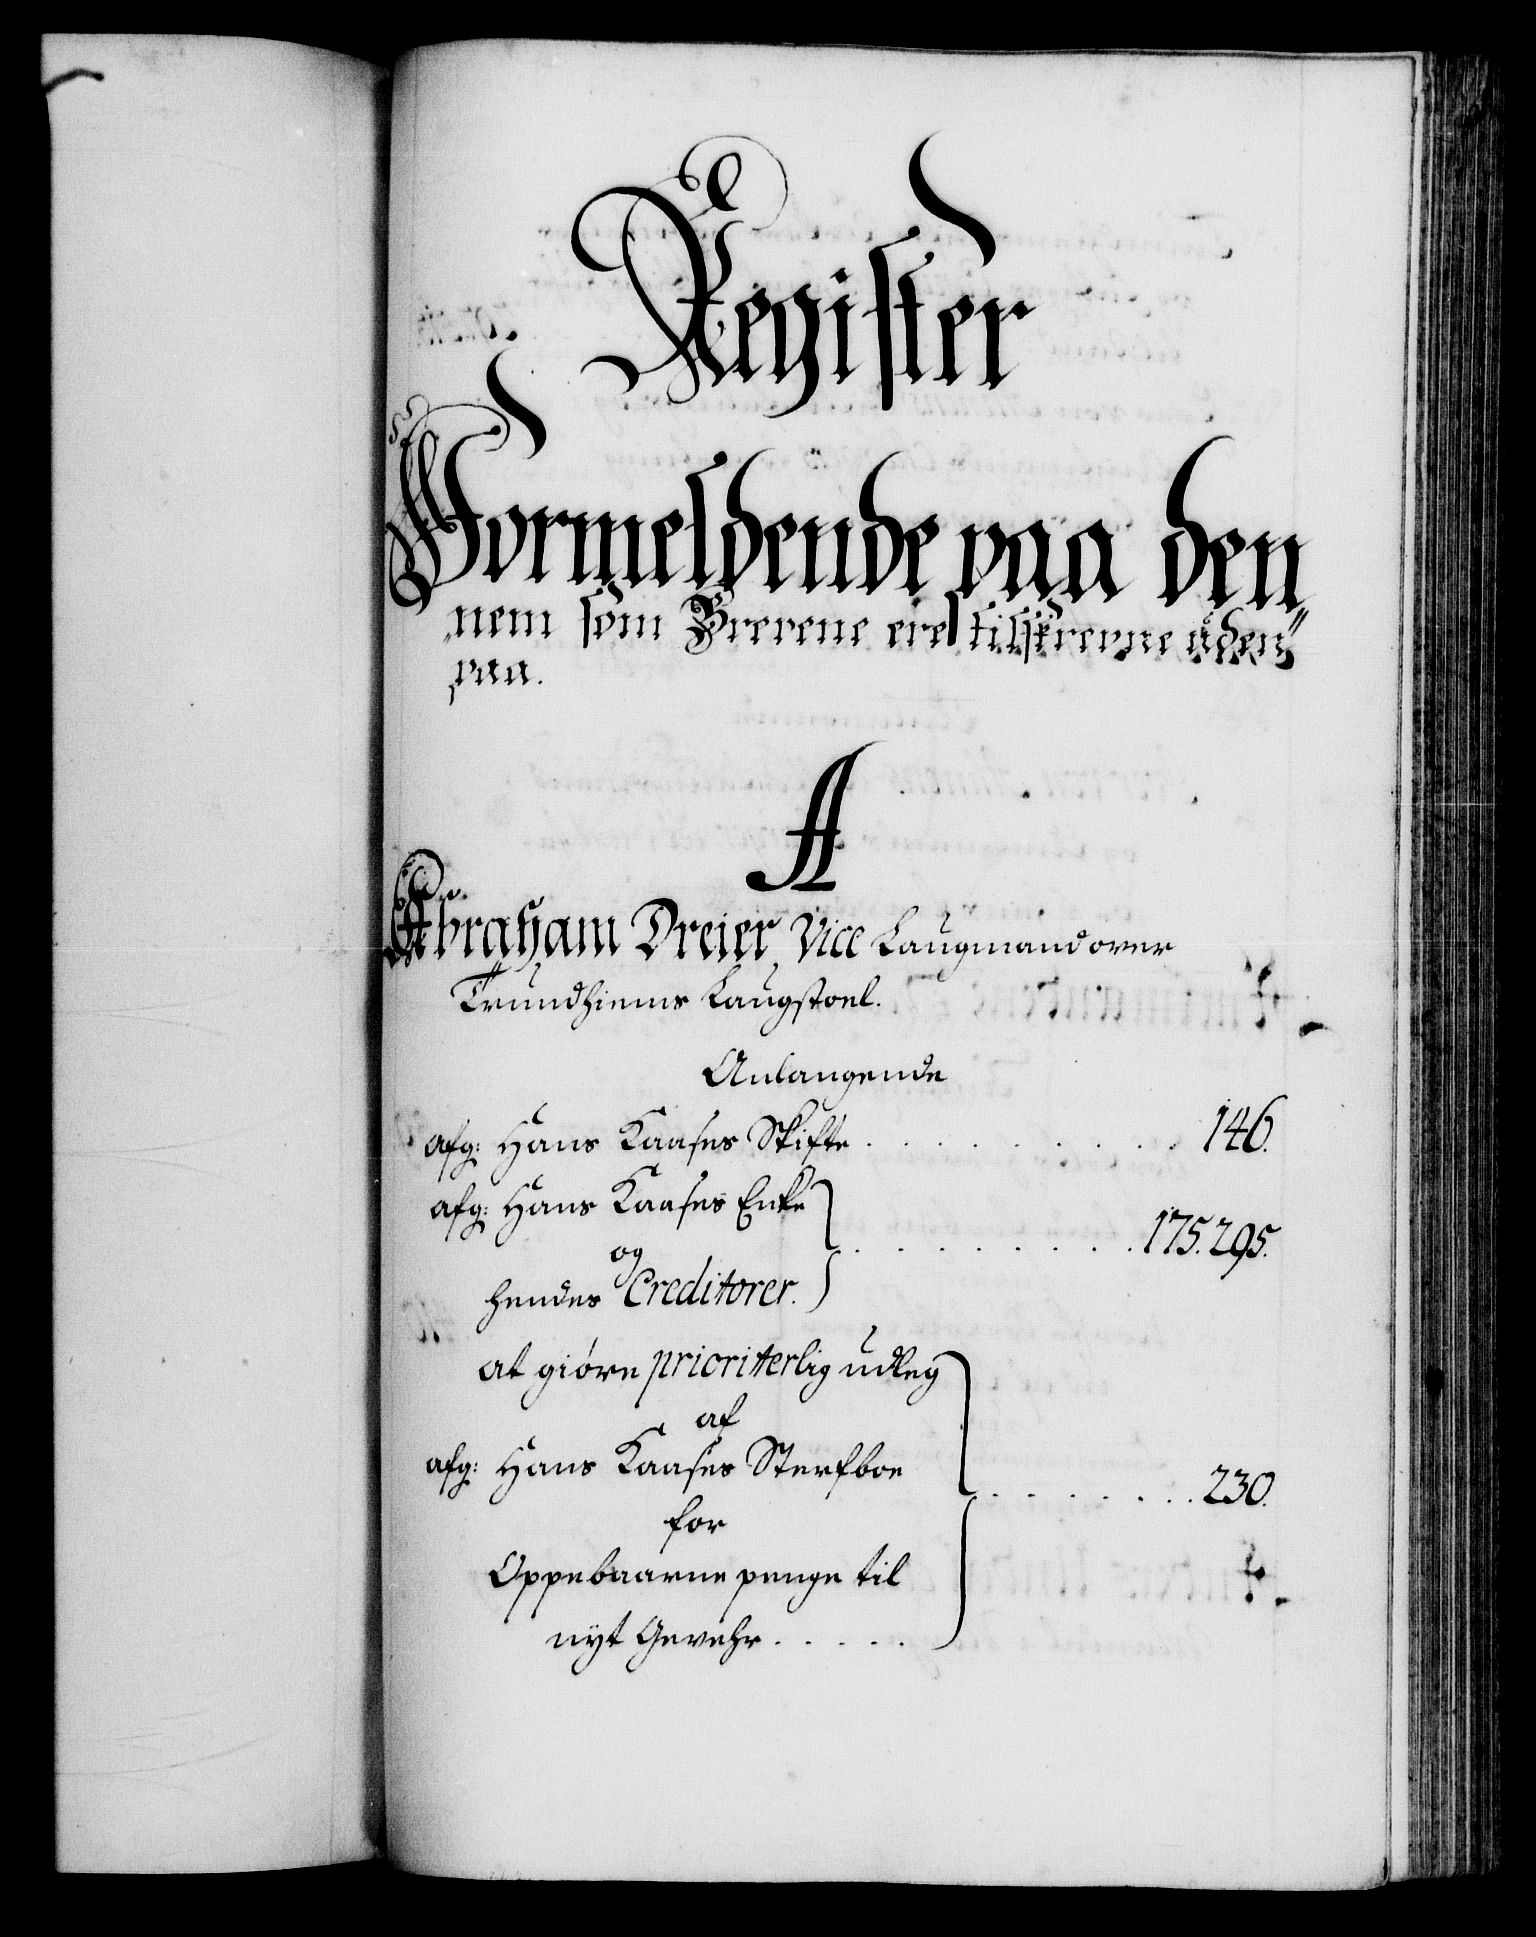 Register
Formeldende paa den
nem som Brevene ere tilskrevne uden
paa.
A
Abraham Dreier, Vice Laugmand over
Trundhiems Laugstoel.
Anlangende
afg: Hans Kaases Skifte . . . . . . . . . 146.
afg: Hans Kaases Enke
og . . . . . . . . . 175. 295.
hendes Creditorer.
at giöre prioriterlig udleg
af
afg: Hans Kaases Sterfboe . . . . . . . 230.
for
Oppebaarne penge til
nyt Gevehr . . . . .